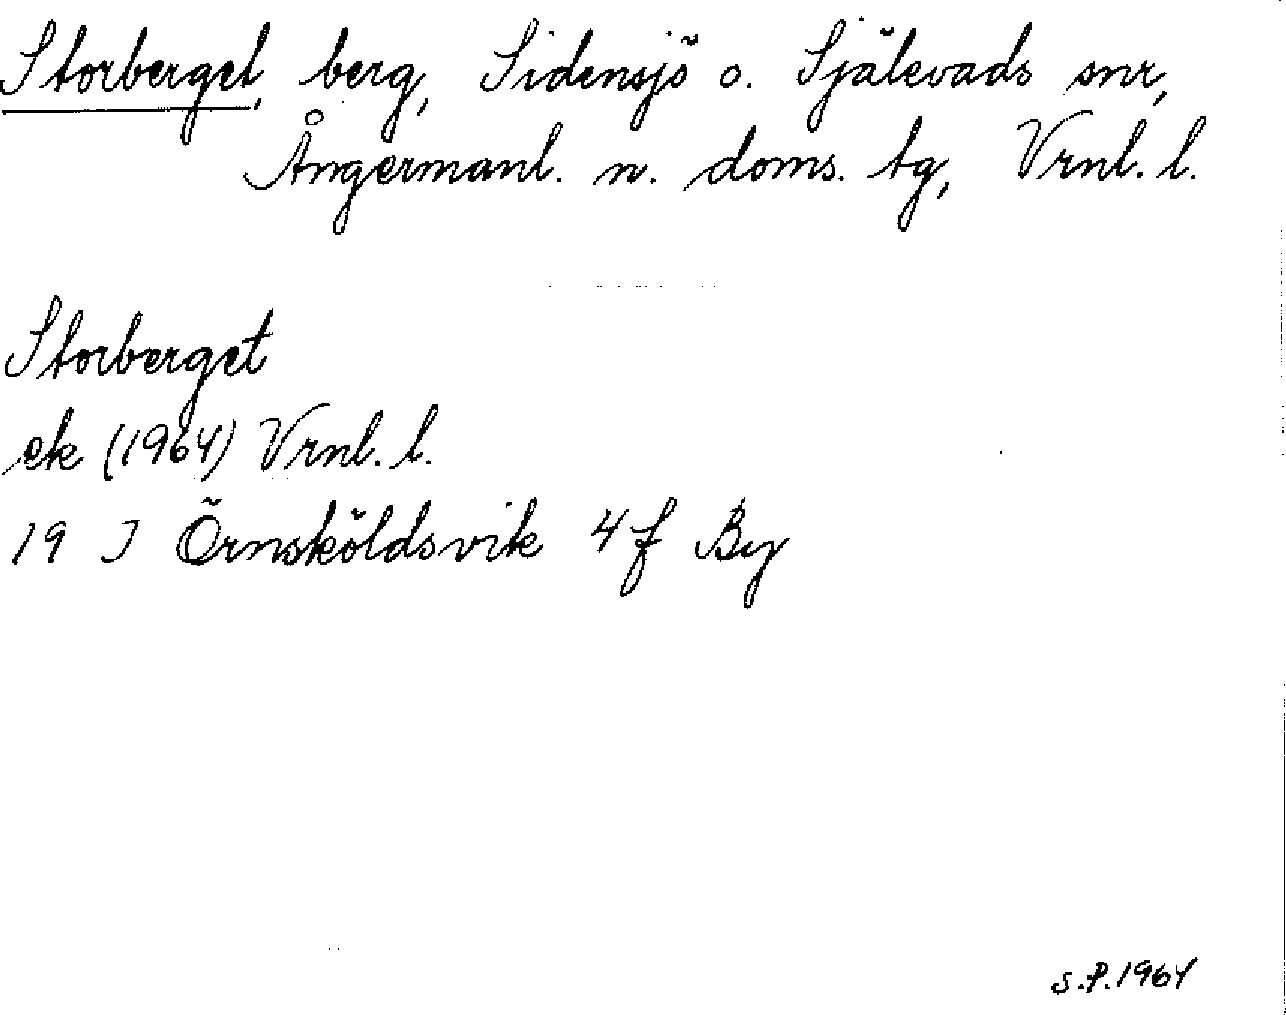 Storberget, berg, Sidensjö o. Själevads snr,
Ångermanl. n. doms. tg, Vrnl. l.
Storberget
ek (1964) Vrnl. l.
19 J Örnsköldsvik 4 f By
S.P. 1964